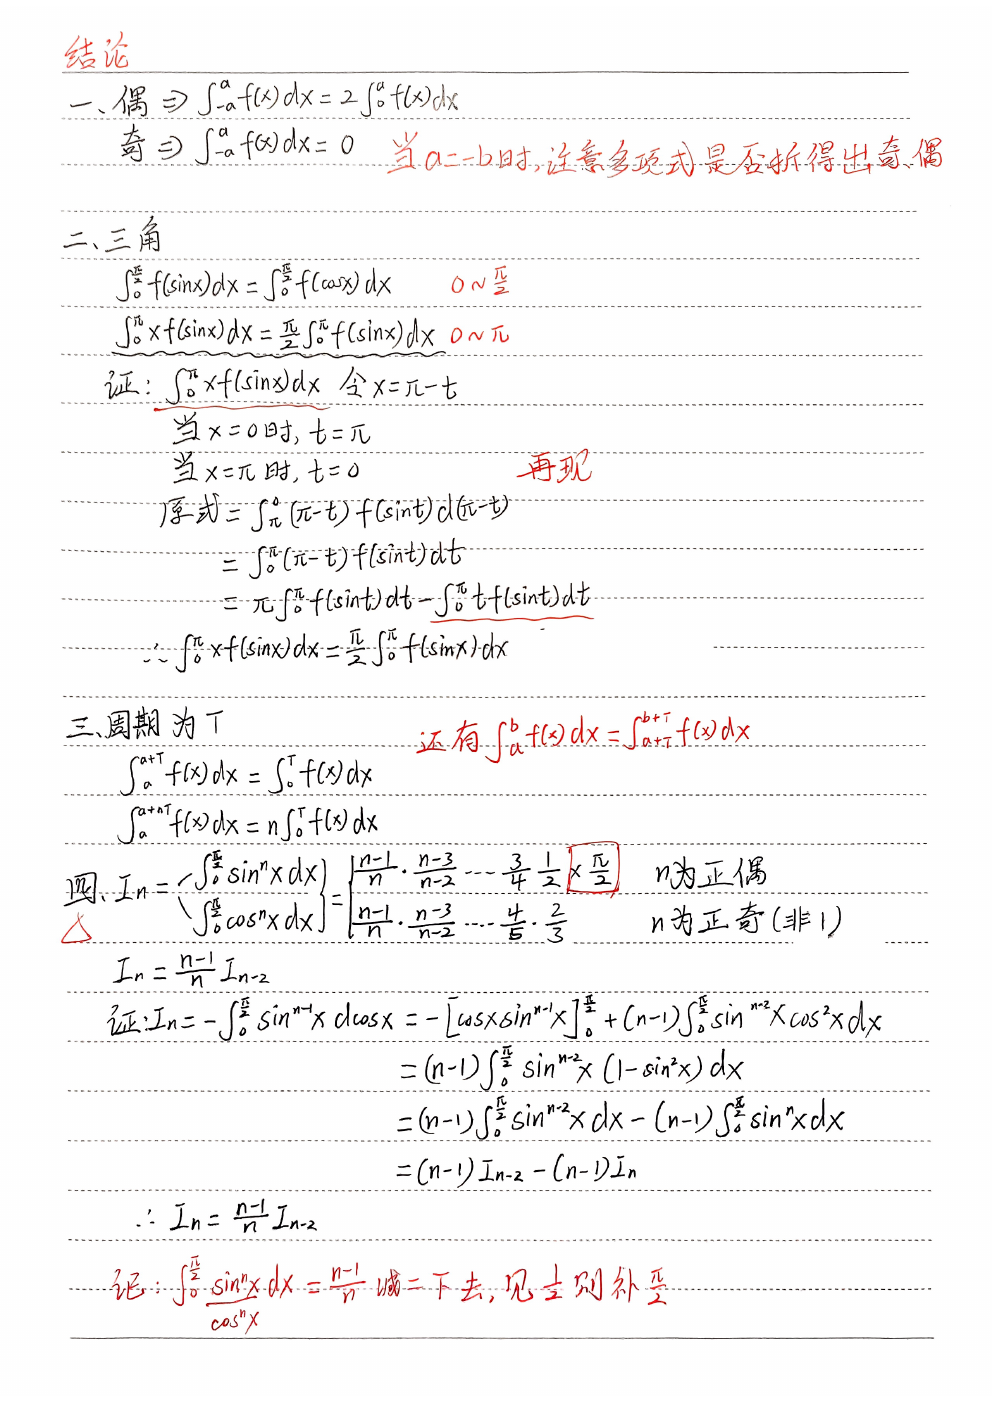 结论
一、偶⇒∫_{-a}^{a} f(x)dx=2∫_{0}^{a} f(x)dx
奇⇒∫_{-a}^{a} f(x)dx=0 当a=-b时,注意多项式是否拆得出奇、偶
二、三角
∫_{0}^{π/2} f(sinx)dx=∫_{0}^{π/2} f(cosx)dx 0~π/2
∫_{0}^{π} xf(sinx)dx=π/2 ∫_{0}^{π} f(sinx)dx 0~π
证: ∫_{0}^{π} xf(sinx)dx 令x=π-t
当x=0时, t=π
当x=π时, t=0 再现
原式=∫_{π}^{0} (π-t)f(sint)d(π-t)
=∫_{0}^{π} (π-t)f(sint)dt
=π∫_{0}^{π} f(sint)dt-∫_{0}^{π} tf(sint)dt
∴∫_{0}^{π} xf(sinx)dx=π/2 ∫_{0}^{π} f(sinx)dx
三、周期为T 还有∫_{a}^{b} f(x)dx=∫_{a+T}^{b+T} f(x)dx
∫_{a}^{a+T} f(x)dx=∫_{0}^{T} f(x)dx
∫_{a}^{a+nT} f(x)dx=n∫_{0}^{T} f(x)dx
四、I_n={∫_{0}^{π/2} sin^n x dx}={(n-1)/n·(n-3)/(n-2)····3/4 1/2×π/2 n为正偶
△ {∫_{0}^{π/2} cos^n x dx} {(n-1)/n·(n-3)/(n-2)····4/5·2/3 n为正奇(非1)
I_n=(n-1)/n I_{n-2}
证:I_n=-∫_{0}^{π/2} sin^{n-1}x dcosx=-[cosxsin^{n-1}x]_{0}^{π/2}+(n-1)∫_{0}^{π/2} sin^{n-2}xcos²xdx
=(n-1)∫_{0}^{π/2} sin^{n-2}x(1-sin²x)dx
=(n-1)∫_{0}^{π/2} sin^{n-2}xdx-(n-1)∫_{0}^{π/2} sin^n xdx
=(n-1)I_{n-2}-(n-1)I_n
∴ I_n=(n-1)/n I_{n-2}
记:∫_{0}^{π/2} sin^n x dx=(n-1)/n 减二下去,见1/2则补π/2
cos^n x